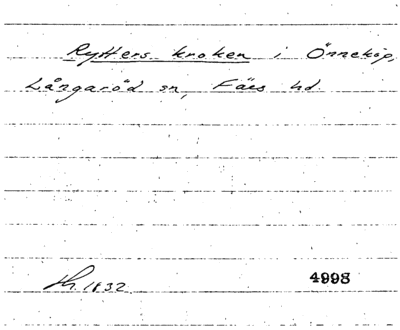 Rytters kroken i Önneköp,
Långaröd sn, Färs hd.
Th. 1832 4998